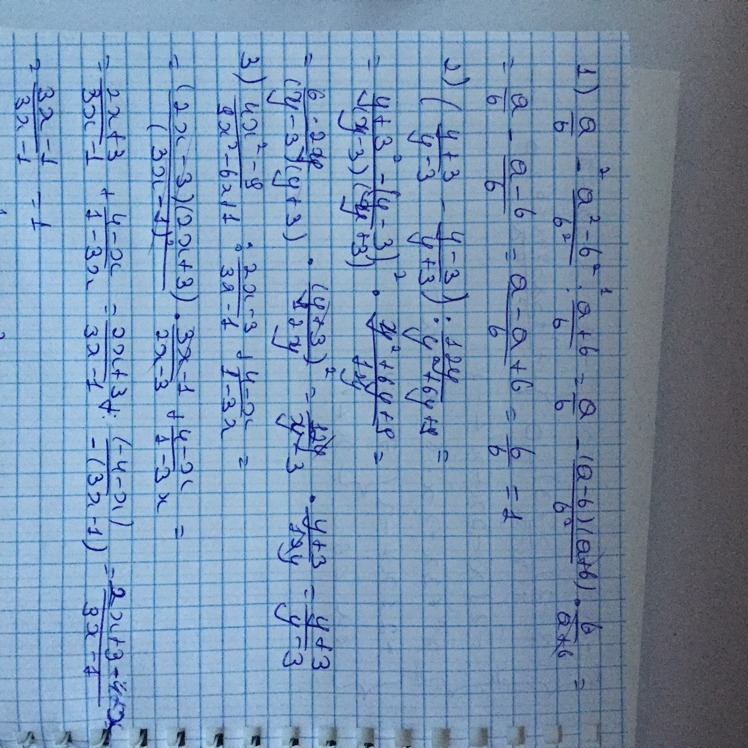 1) a/b - (a² - b²)/b² : (a+b)/b = a/b - ((a-b)(a+b))/b² · b/(a+b) =
= a/b - (a-b)/b = (a-a+b)/b = b/b = 1
2) ((y+3)/(y-3) - (y-3)/(y+3)) : 12y/(y²+6y+9) =
= ((y+3)² - (y-3)²)/((y-3)(y+3)) · (y²+6y+9)/12y =
(y-3)(y+3) · (y+3)²/12y = 12y/(y-3) · (y+3)/12y = (y+3)/(y-3)
3) (4x²-9)/(9x²-6x+1) : (2x-3)/(3x-1) + (4-x)/(1-3x) =
= ((2x-3)(2x+3))/(3x-1)² · (3x-1)/(2x-3) + (4-x)/(1-3x) =
= (2x+3)/(3x-1) + (4-x)/(1-3x) = (2x+3)/(3x-1) + (-4-x)/(-(3x-1)) = (2x+3-4+x)/(3x-1)
= (3x-1)/(3x-1) = 1